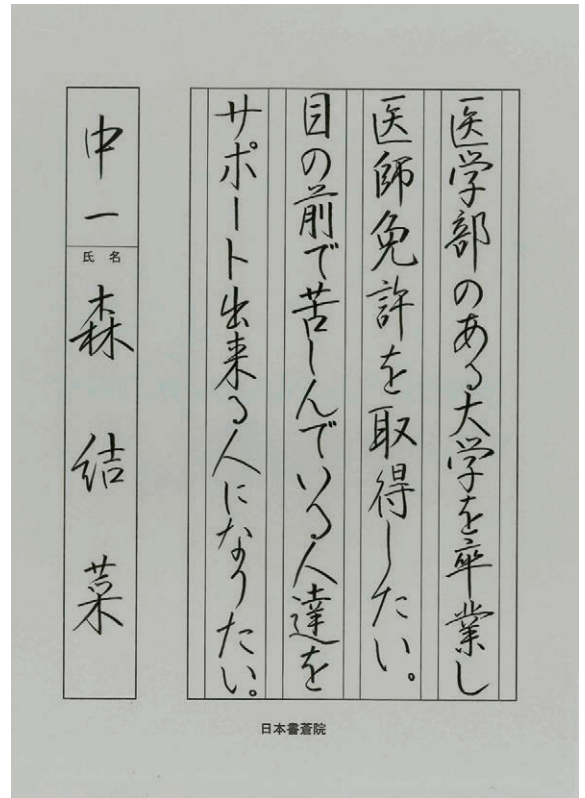 医学部のある大学を卒業し
医師免許を取得したい。
目の前で苦しんでいる人達を
サポート出来る人になりたい。
中一
氏名
森 結菜
日本書蒼院